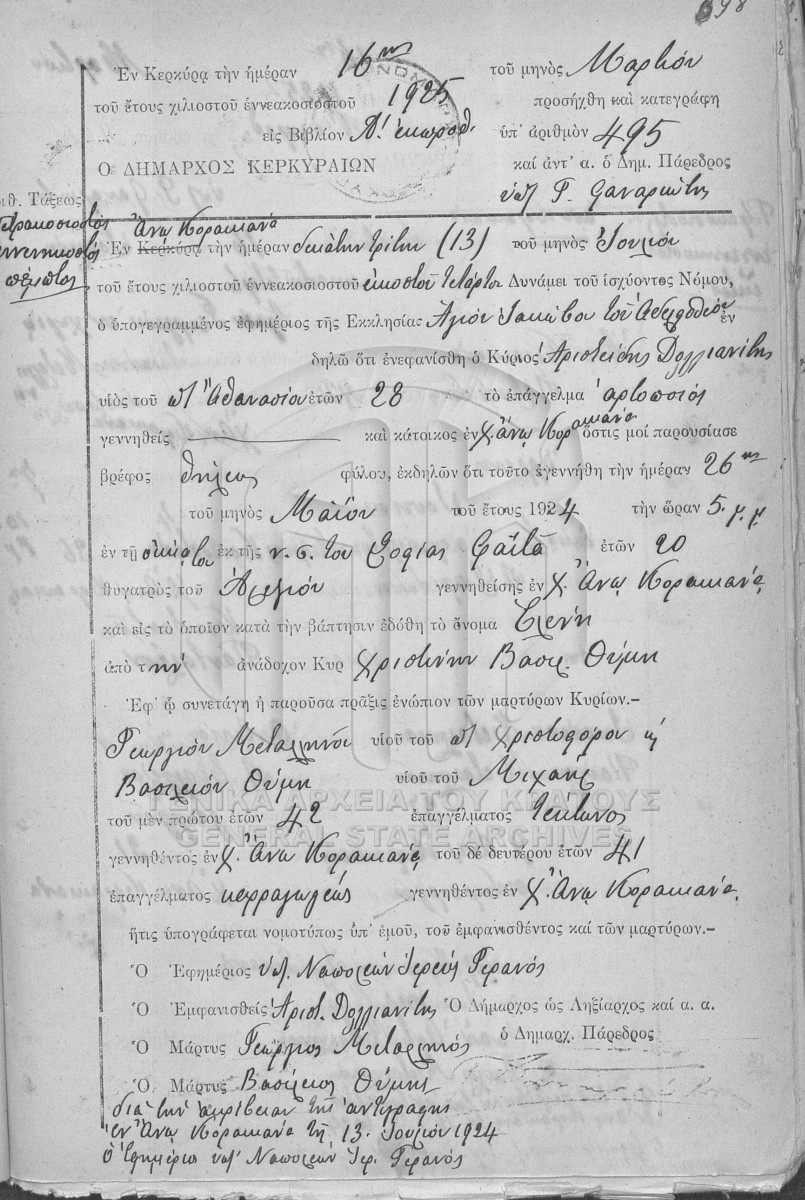 698
Ἐν Κερκύρᾳ τὴν ἡμέραν 16ην τοῦ μηνὸς Μαρτίου
τοῦ ἔτους χιλιοστοῦ ἐννεακοσιοστοῦ 1925 προσήχθη καὶ κατεγράφη
εἰς Βιβλίον Α! ἐκπροθ. ὑπ' ἀριθμὸν 495
Ο ΔΗΜΑΡΧΟΣ ΚΕΡΚΥΡΑΙΩΝ καί ἀντ' α. ὁ Δημ. Πάρεδρος
υπ Γ.
ιθ. Τάξεως
τετρακοσιοστὸς
ἐννενηκοστὸς
πέμπτος
Ἄνω Κορακιάνα
Ἐν Κερκύρᾳ τὴν ἡμέραν δεκάτην τρίτην (13) τοῦ μηνὸς Ἰουλίου
τοῦ ἔτους χιλιοστοῦ ἐννεακοσιοστοῦ εἰκοστοῦ τετάρτου Δυνάμει τοῦ ἰσχύοντος Νόμου,
ὁ ὑπογεγραμμένος ἐφημέριος τῆς Ἐκκλησίας Ἁγίου Ἰακώβου τοῦ Ἀδελφοθέου ἐν
δηλῶ ὅτι ἐνεφανίσθη ὁ Κύριος Ἀριστείδης Δολλιανίτης
υἱὸς τοῦ ποτ Ἀθανασίου ἐτῶν 28 τὸ ἐπάγγελμα ἀρτοποιός
γεννηθεὶς καὶ κάτοικος ἐν χ. Ἄνω Κορακιάνα ὅστις μοί παρουσίασε
βρέφος θήλεος φύλου, ἐκδηλῶν ὅτι τοῦτο ἐγεννήθη τὴν ἡμέραν 26ην
τοῦ μηνὸς Μαΐου τοῦ ἔτους 1924 τὴν ὥραν 5. μ.μ
ἐν τῇ οἰκίᾳ του ἐκ τῆς ν. σ. του Σοφίας Φαϊτᾶ ἐτῶν 20
θυγατρὸς τοῦ γεννηθείσης ἐν χ. Ἄνω Κορακιάνα
καὶ εἰς τὸ ὁποῖον κατὰ τὴν βάπτισιν ἐδόθη τὸ ὄνομα Ἑλένη
ἀπὸ τὴν ἀνάδοχον Κυρ Χριστίνην Βασιλ. Θύμη
Ἐφ' ᾧ συνετάγη ἡ παροῦσα πρᾶξις ἐνώπιον τῶν μαρτύρων Κυρίων.–
Γεωργίου Μεταλληνοῦ υἱοῦ τοῦ ποτ Χριστοφόρου κ
Βασιλείου Θύμη υἱοῦ τοῦ Μιχαήλ
ΓΕΝΙΚΑ ΑΡΧΕΙΑ ΤΟΥ ΚΡΑΤΟΥΣ
τοῦ μὲν πρώτου ἐτῶν 42 ἐπαγγέλματος τέκτονος
GENERAL STATE ARCHIVES
γεννηθέντος ἐν χ. Ἄνω Κορακιάνα τοῦ δὲ δευτέρου ἐτῶν 41
ἐπαγγέλματος καρραγωγέως γεννηθέντος ἐν χ. Ἄνω Κορακιάνα
ἥτις ὑπογράφεται νομοτύπως ὑπ' ἐμοῦ, τοῦ ἐμφανισθέντος καί τῶν μαρτύρων.–
Ὁ Ἐφημέριος υπ. Ναπολέων Ἱερεύς Γερανός
Ὁ Ἐμφανισθείς Ἀριστ. Δολλιανίτης Ὁ Δήμαρχος ὡς Ληξίαρχος καί α. α.
ὁ Δημαρχ. Πάρεδρος
Ὁ Μάρτυς Γεώργιος Μεταλληνός
Ὁ Μάρτυς Βασίλειος Θύμης
διὰ τὴν ἀκρίβειαν τῆς ἀντιγραφῆς
ἐν Ἄνω Κορακιάνα τῇ 13. Ἰουλίου 1924
ὁ Ἐφημέριος υπ Ναπολέων Ἱερ. Γερανός